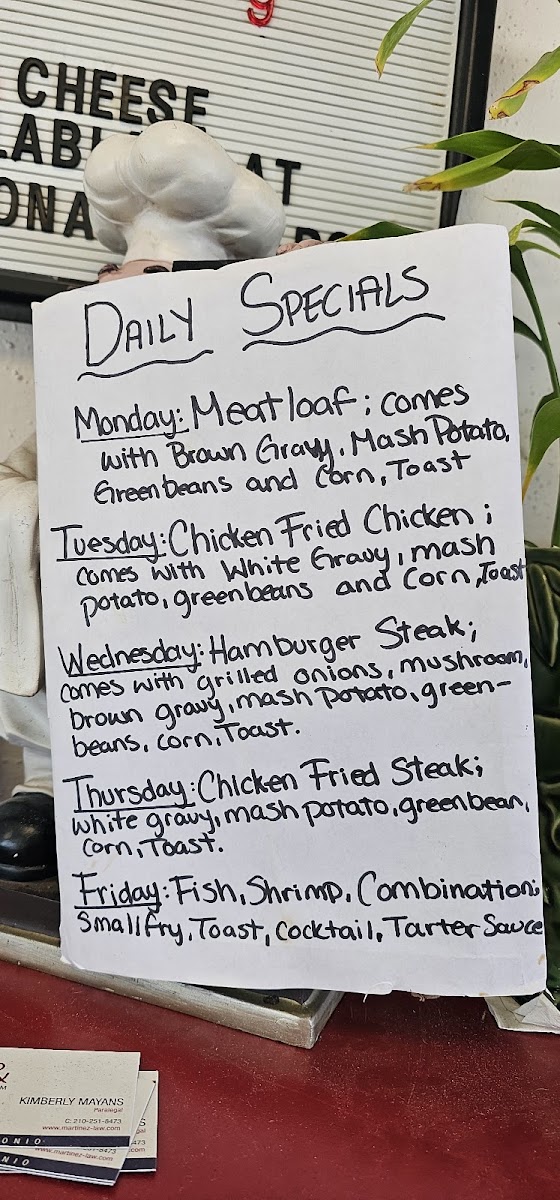 CHEESE
AT
DAILY SPECIALS
Monday: Meatloaf; comes
with Brown Gravy, Mash Potato,
Greenbeans and Corn, Toast
Tuesday: Chicken Fried Chicken;
comes with White Gravy, mash
potato, greenbeans and Corn, Toast
Wednesday: Hamburger Steak;
comes with grilled onions, mushroom,
brown gravy, mash potato, green-
beans, corn, Toast.
Thursday: Chicken Fried Steak;
white gravy, mash potato, greenbean,
Corn, Toast.
Friday: Fish, Shrimp, Combination;
Small fry, Toast, Cocktail, Tarter Sauce
KIMBERLY MAYANS
Paralegal
C: 210-251-8473
www.martinez-law.com
ONIO
8473
www.martinez-law.com
ONIO